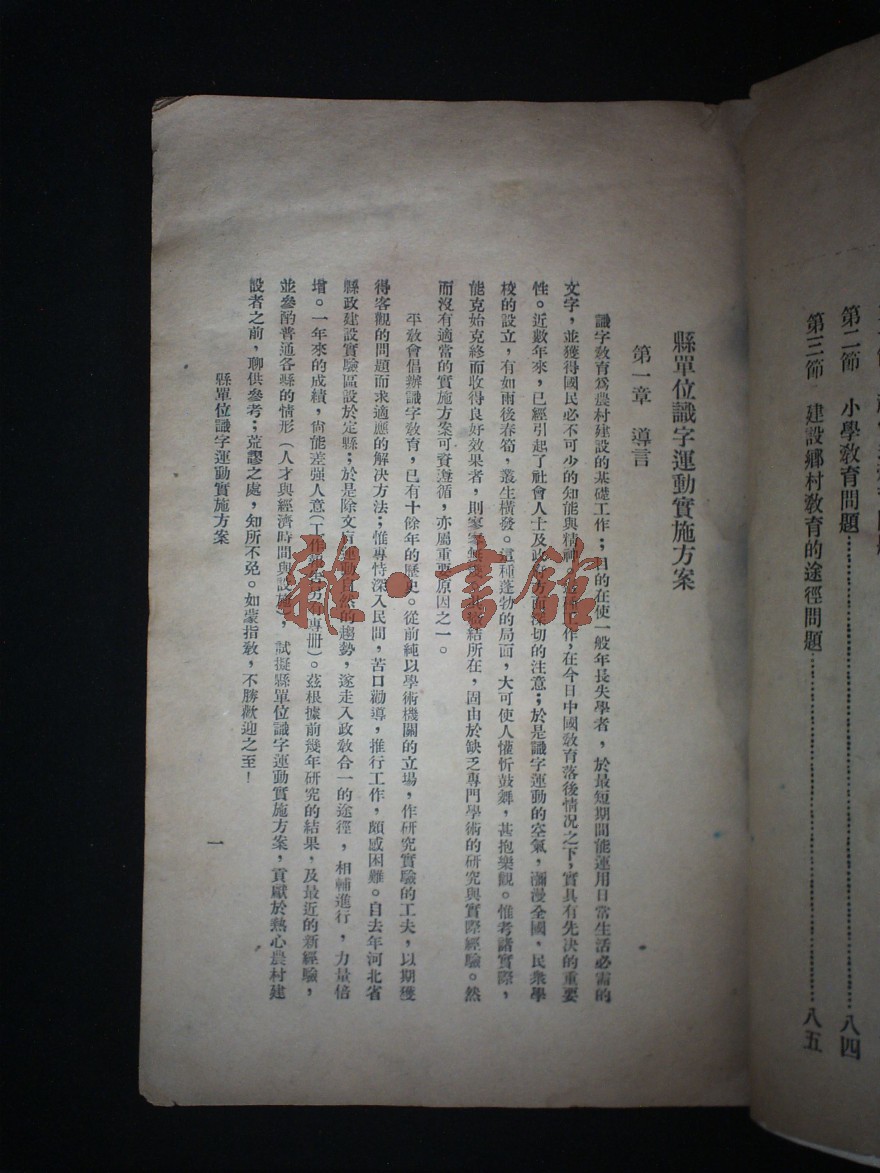 第二節　小學教育問題……八四
第三節　建設鄉村教育的途徑問題……八五
縣單位識字運動實施方案
第一章　導言
識字教育爲農村建設的基礎工作；目的在使一般年長失學者，於最短期間能運用日常生活必需的
文字，並獲得國民必不可少的知能與精神。這種工作，在今日中國教育落後情況之下，實具有先決的重要
性。近數年來，已經引起了社會人士及政府方面深切的注意；於是識字運動的空氣，瀰漫全國，民衆學
校的設立，有如雨後春筍，叢生橫發。這種蓬勃的局面，大可使人懽忻鼓舞，甚抱樂觀。惟考諸實際，
能克始克終而收得良好效果者，則寥寥無幾。其癥結所在，固由於缺乏專門學術的研究與實際經驗。然
而沒有適當的實施方案可資遵循，亦屬重要原因之一。
平教會倡辦識字教育，已有十餘年的歷史。從前純以學術機關的立場，作研究實驗的工夫，以期獲
得客觀的問題而求適應的解決方法；惟專恃深入民間，苦口勸導，推行工作，頗感困難。自去年河北省
縣政建設實驗區設於定縣；於是除文盲運動自然的趨勢，遂走入政教合一的途徑，相輔進行，力量倍
增。一年來的成績，尙能差强人意（工作報告另有專冊）。茲根據前幾年研究的結果，及最近的新經驗，
並參酌普通各縣的情形（人才與經濟時間與設施），試擬縣單位識字運動實施方案，貢獻於熱心農村建
設者之前，聊供參考；荒謬之處，知所不免。如蒙指教，不勝歡迎之至！
縣單位識字運動實施方案
一
雜·書館